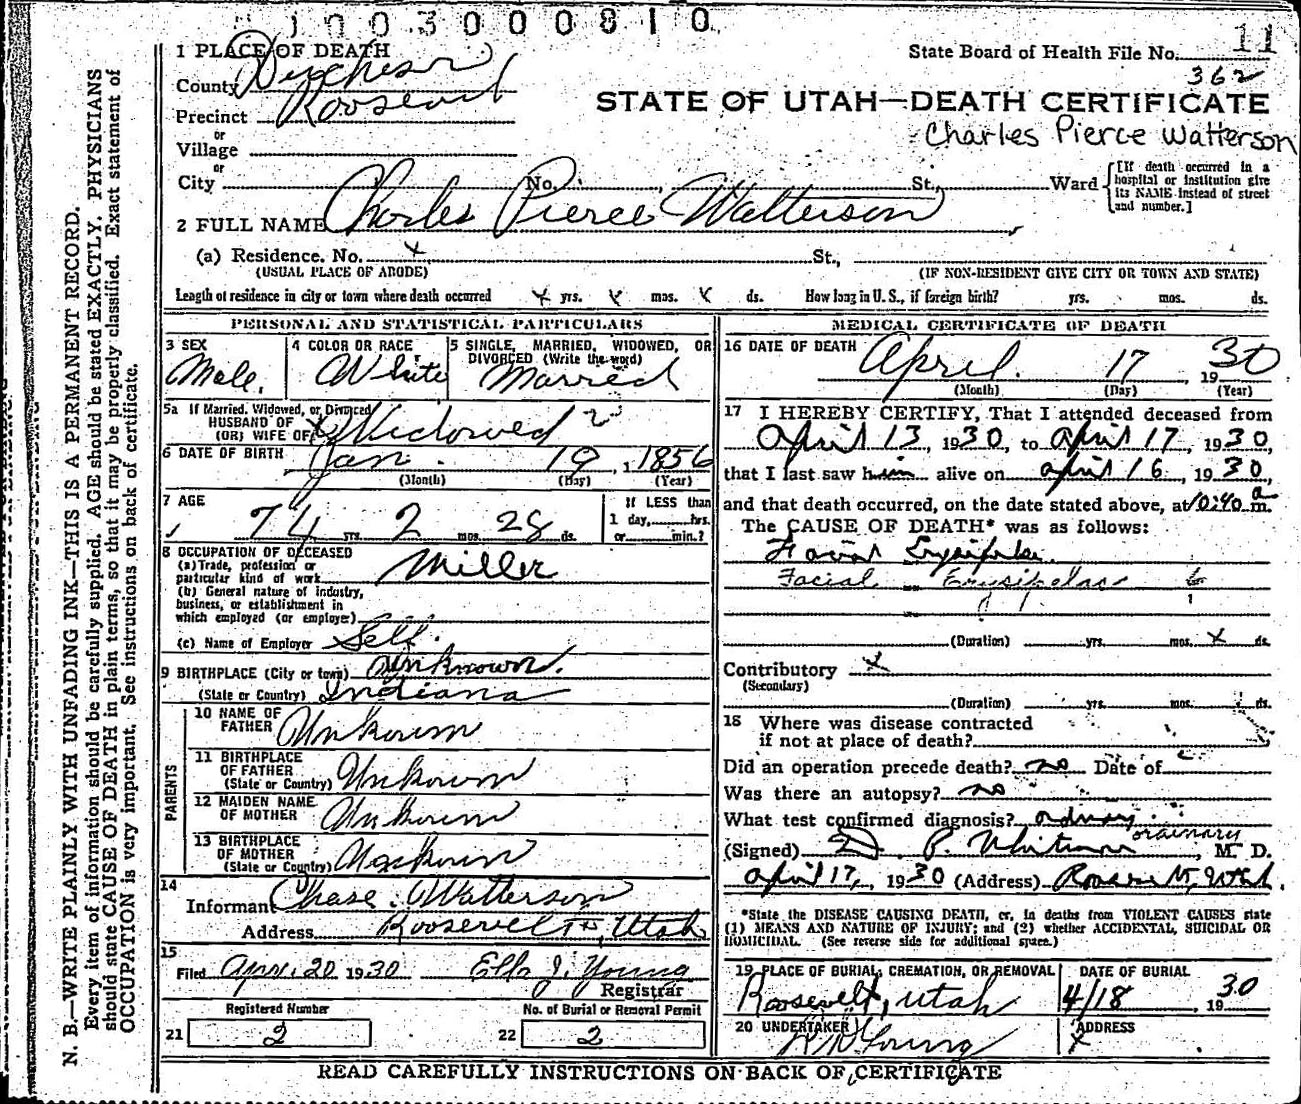 1003000810
1 PLACE OF DEATH
State Board of Health File No. 11
362
County Duchesne
STATE OF UTAH—DEATH CERTIFICATE
Precinct Roosevelt
Charles Pierce Watterson
or
Village
or
City No. St., Ward
[If death occurred in a hospital or institution give its NAME instead of street and number.]
2 FULL NAME Charles Pierce Watterson
(a) Residence. No. x St.,
(USUAL PLACE OF ABODE) (IF NON-RESIDENT GIVE CITY OR TOWN AND STATE)
Length of residence in city or town where death occurred x yrs. x mos. x ds. How long in U. S., if foreign birth? yrs. mos. ds.
PERSONAL AND STATISTICAL PARTICULARS
3 SEX
Male.
4 COLOR OR RACE
White
5 SINGLE, MARRIED, WIDOWED, OR DIVORCED (Write the word)
Married
5a If Married, Widowed, or Divorced
HUSBAND OF
(OR) WIFE OF x Widowed ?
6 DATE OF BIRTH Jan. 19, 1856
(Month) (Day) (Year)
7 AGE
74 yrs. 2 mos. 28 ds.
If LESS than
1 day, hrs.
or min.?
8 OCCUPATION OF DECEASED
(a) Trade, profession or
particular kind of work Miller
(b) General nature of industry,
business, or establishment in
which employed (or employer)
(c) Name of Employer Self.
9 BIRTHPLACE (City or town) Unknown.
(State or Country) Indiana
PARENTS
10 NAME OF
FATHER Unkown
11 BIRTHPLACE
OF FATHER
(State or Country) Unkown
12 MAIDEN NAME
OF MOTHER Unkown
13 BIRTHPLACE
OF MOTHER
(State or Country) Unkown
14
Informant Chase. Watterson
Address Roosevelt, Utah
15
Filed Apr. 20 1930 Ella J. Young
Registrar
Registered Number No. of Burial or Removal Permit
21 2 22 2
MEDICAL CERTIFICATE OF DEATH
16 DATE OF DEATH April 17 1930
(Month) (Day) (Year)
17 I HEREBY CERTIFY, That I attended deceased from
April 13 1930, to April 17, 1930,
that I last saw him alive on April 16, 1930,
and that death occurred, on the date stated above, at 10:40 a m.
The CAUSE OF DEATH* was as follows:
Facial Erysipelas
Facial Erysipelas
(Duration) yrs. mos. x ds.
Contributory x
(Secondary)
(Duration) yrs. mos. ds.
18 Where was disease contracted
if not at place of death?
Did an operation precede death? no Date of
Was there an autopsy? no
What test confirmed diagnosis? ordinary
ordinary
(Signed) D. P. Whitmore, M. D.
April 17, 1930 (Address) Roosevelt, Utah.
*State the DISEASE CAUSING DEATH, or, in deaths from VIOLENT CAUSES state
(1) MEANS AND NATURE OF INJURY; and (2) whether ACCIDENTAL, SUICIDAL OR
HOMICIDAL. (See reverse side for additional space.)
19 PLACE OF BURIAL, CREMATION, OR REMOVAL
Roosevelt, Utah
DATE OF BURIAL
4/18 1930
20 UNDERTAKER
Young
ADDRESS
x
READ CAREFULLY INSTRUCTIONS ON BACK OF CERTIFICATE
N. B.—WRITE PLAINLY WITH UNFADING INK—THIS IS A PERMANENT RECORD.
Every item of information should be carefully supplied. AGE should be stated EXACTLY. PHYSICIANS
should state CAUSE OF DEATH in plain terms, so that it may be properly classified. Exact statement of
OCCUPATION is very important. See instructions on back of certificate.